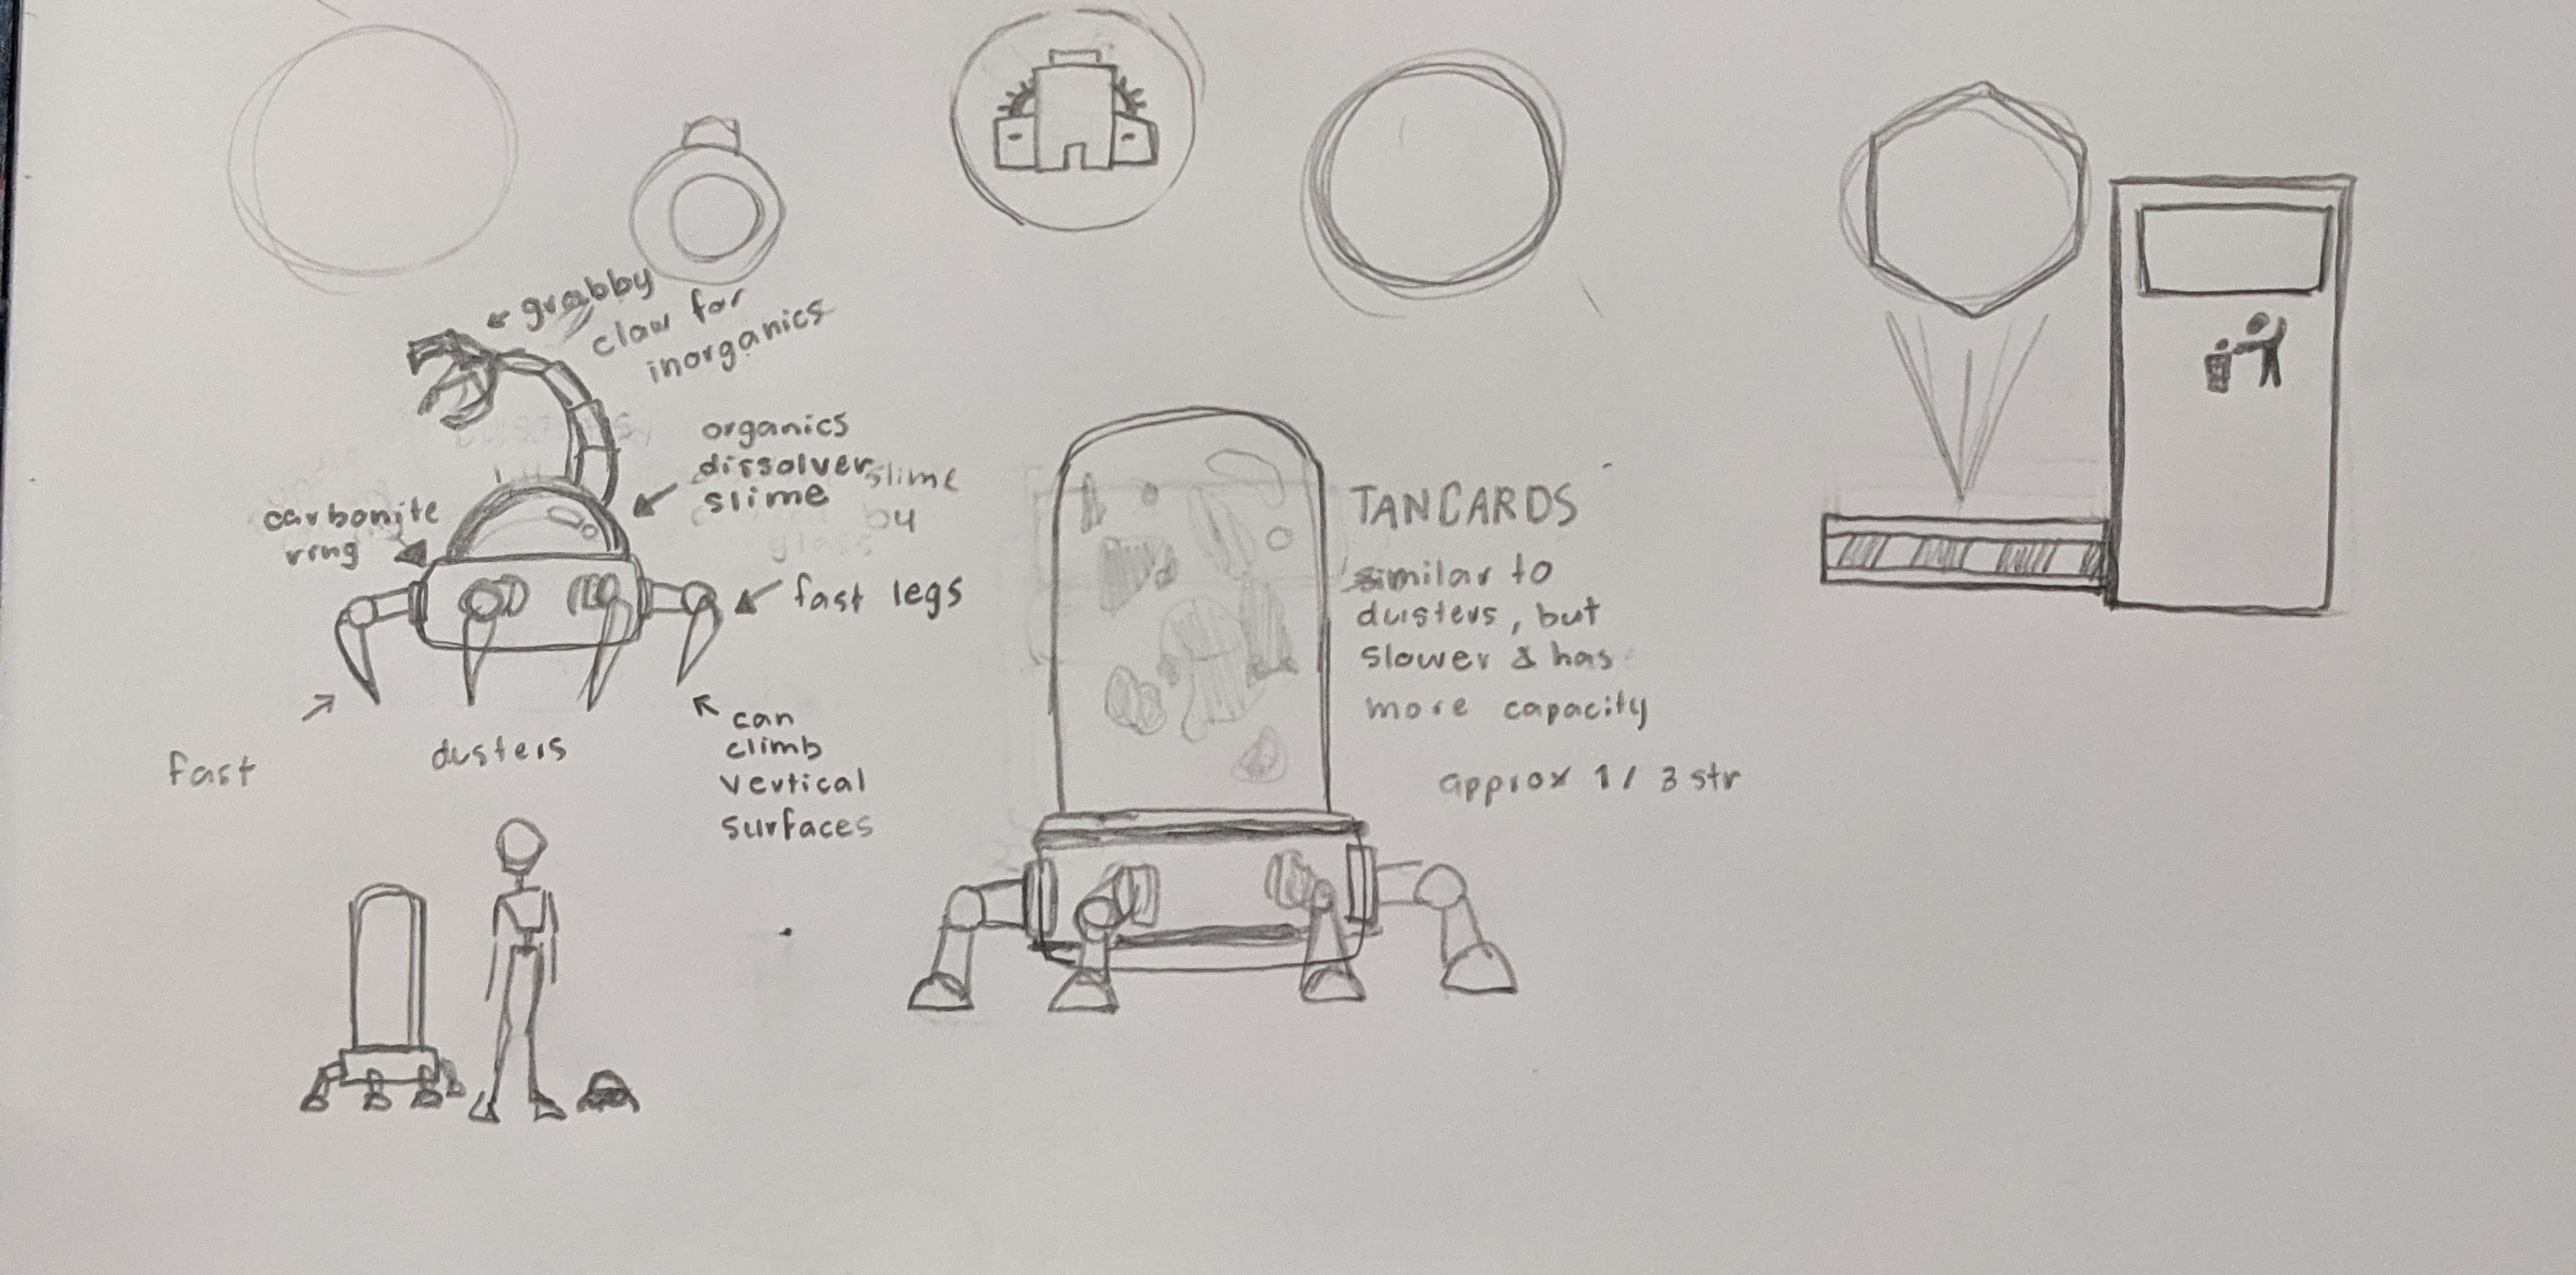 grabby
claw for
inorganics
organics
dissolver slime
slime
by
carbonite
ring
fast legs
fast
dusters
can
climb
vertical
surfaces
TANCARDS
similar to
dusters, but
slower & has
more capacity
approx 1 / 3 str